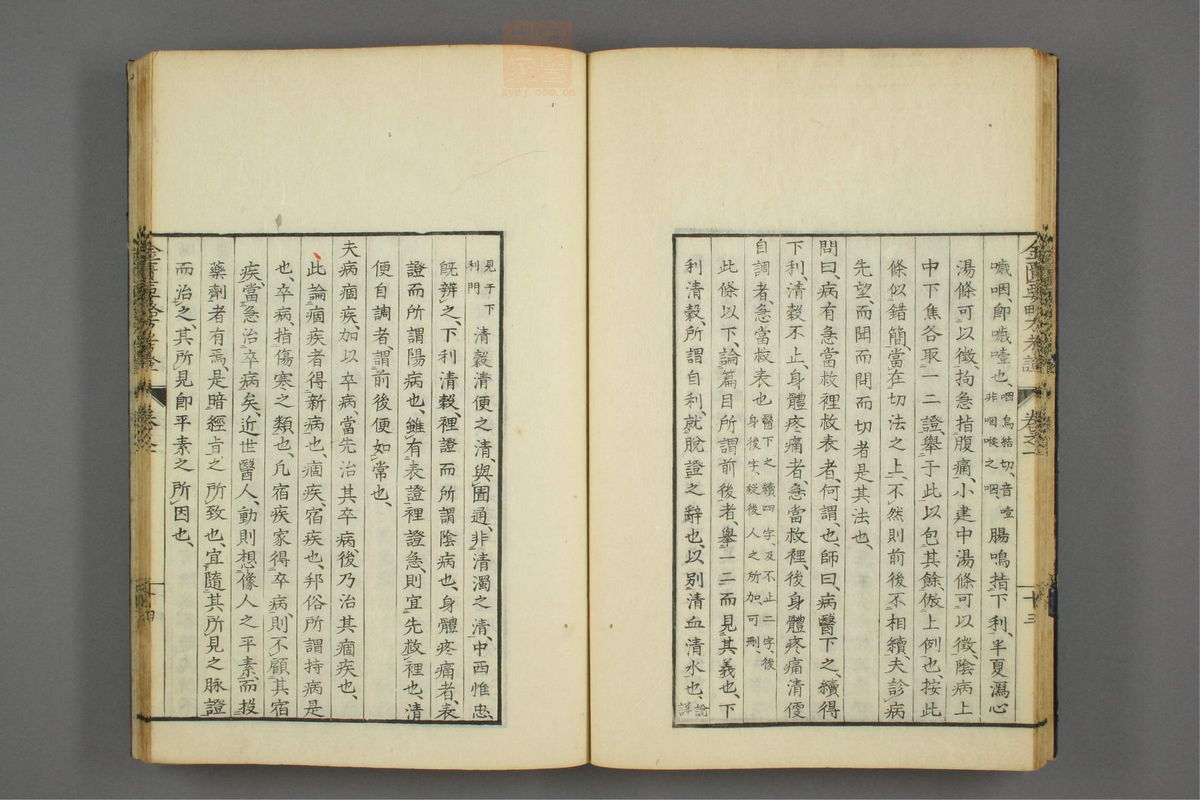 噦咽、卽噦噎也、咽烏結切、音噎非咽喉之咽、腸鳴、指下利、半夏瀉心
湯條可以徵、拘急指腹痛、小建中湯條可以徵、陰病上
中下焦各取一二證、舉于此以包其餘、倣上例也、按此
條似錯簡當在切法之上、不然則前後不相續、夫診病
先望而聞而問而切者是其法也、
問曰、病有急當救裡救表者、何謂也、師曰、病醫下之、續得
下利、清穀不止、身體疼痛者、急當救裡、後身體疼痛清便
自調者、急當救表也、醫下之續四字、及不止二字、後身後字、縱後人之所加、可刪、
此條以下、論篇目所謂前後者、舉一二而見其義也、下
利清穀、所謂自利、就脫證之辭也、以別清血清水也、說詳
見于下利門清穀清便之清、與圊通、非清濁之清、中西惟忠
旣辨之、下利清穀、裡證而所謂陰病也、身體疼痛者、表
證而所謂陽病也、雖有表證裡證急、則宜先救裡也、清
便自調者、謂前後便如常也、
夫病痼疾、加以卒病、當先治其卒病後乃治其痼疾也、
此論痼疾者得新病也、痼疾、宿疾也、邦俗所謂持病是
也、卒病、指傷寒之類也、凡宿疾家得卒病、則不顧其宿
疾、當急治卒病矣、近世醫人、動則想像人之平素、而投
藥劑者有焉、是暗經旨之所致也、宜隨其所見之脉證
而治之、其所見卽平素之所因也、